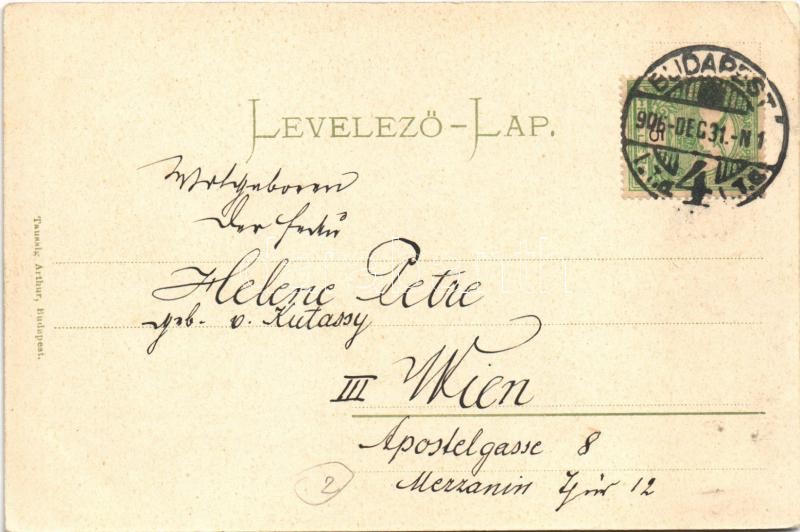 LEVELEZŐ-LAP.
BUDAPEST
906-DEC 31.-N 1
4
5
Wolgeboren
der Frau
Helene Petre
geb. v. Kutassy
III Wien
Apostelgasse 8
Mezzanin Thür 12
2
Taussig Arthur, Budapest.